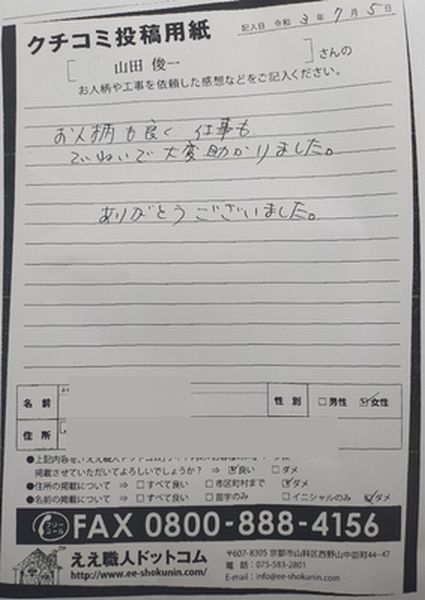 クチコミ投稿用紙
記入日 令和 3 年 7 月 5 日
[ 山田 俊一 ] さんの
お人柄や工事を依頼した感想などをご記入ください。
お人柄も良く 仕事も
ていねいで大変助かりました。
ありがとうございました。
名前
性別 □男性 ☑女性
住所
●上記内容を、「ええ職人ドットコム」
掲載させていただいてよろしいでしょうか? ⇒ ☑良い □ダメ
●住所の掲載について ⇒ □すべて良い □市区町村まで ☑ダメ
●名前の掲載について ⇒ □すべて良い □苗字のみ □イニシャルのみ ☑ダメ
フリーコール FAX 0800-888-4156
ええ職人ドットコム
http://www.ee-shokunin.com/
〒607-8305 京都市山科区西野山中臣町44-47
電話:075-583-2801
E-mail:info@ee-shokunin.com